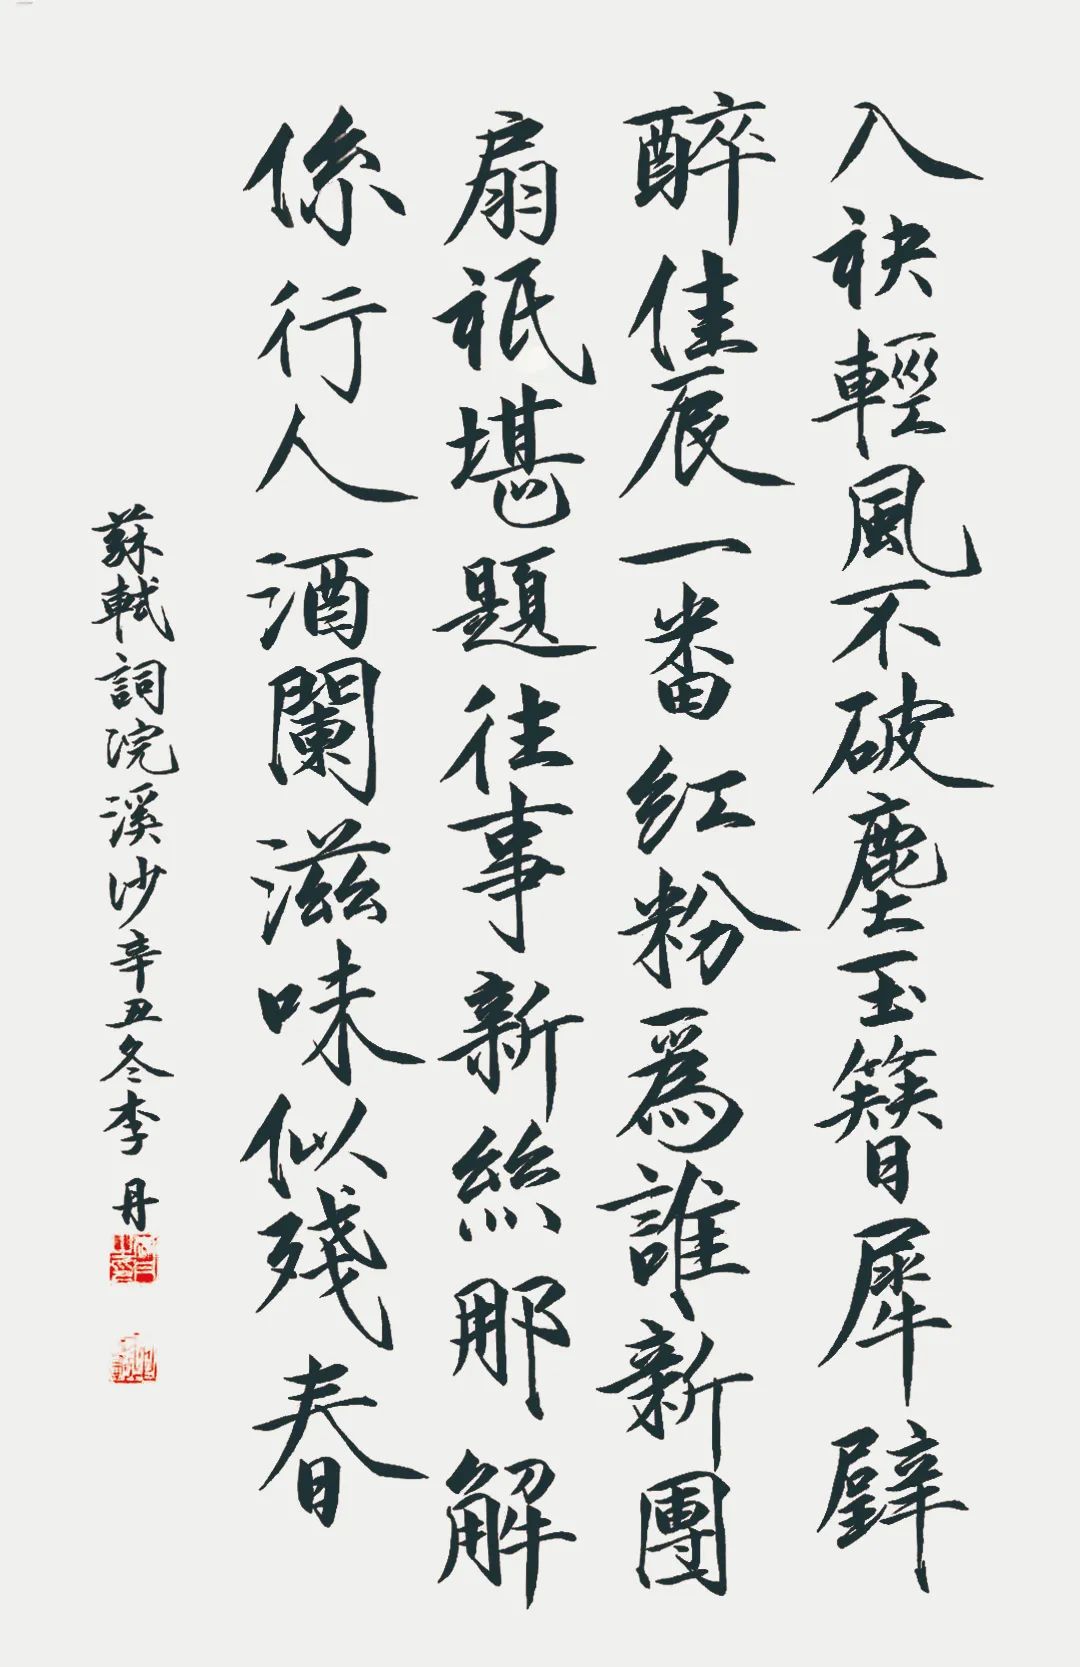 入袂輕風不破塵玉簪犀璧
醉佳辰一番紅粉爲誰新團
扇祇堪題往事新絲那解
係行人酒闌滋味似殘春
蘇軾詞浣溪沙辛丑冬李丹